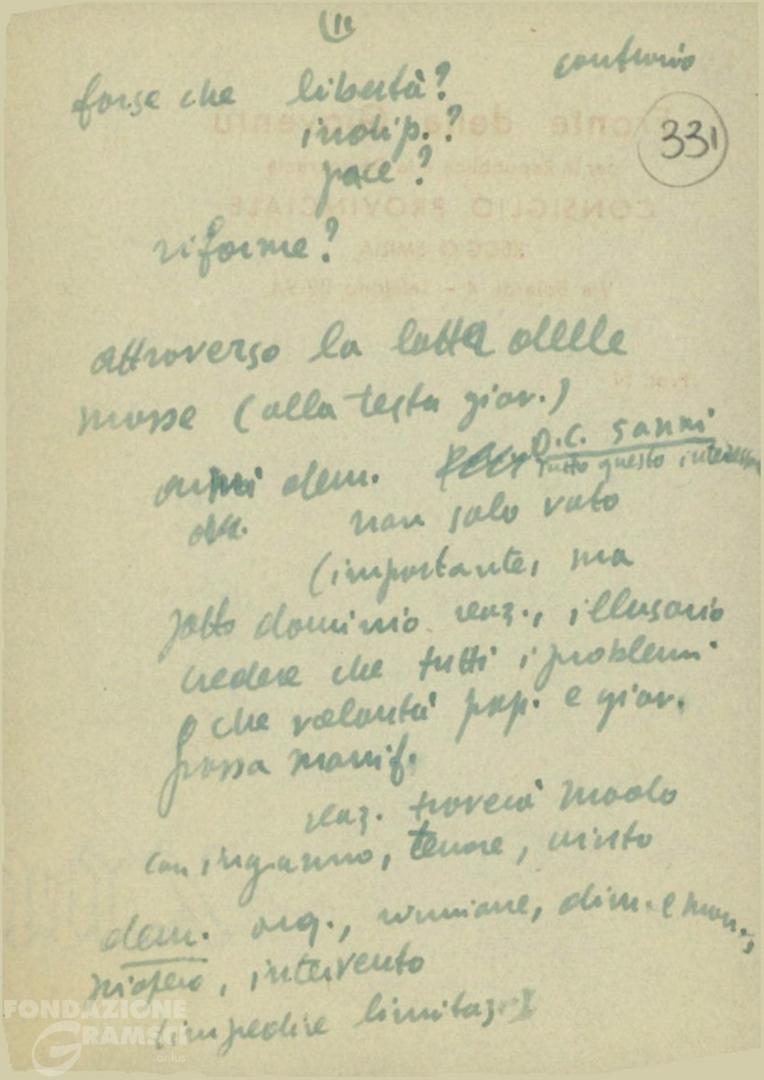 11
forse che libertà? contrario
indip.?
331
pace?
riforme?
attraverso la lotta delle
masse (alla testa giov.)
dem. D.C. sanni
tutto questo interessa
non solo voto
(importante, ma
sotto dominio reaz., illusorio
credere che tutti i problemi
o che volontà pop. e giov.
possa manif.
reaz. troverà modo
con inganno, terrore,
dem. org., riunione, dim. e man.,
sciopero, intervento
(impedire limitaz.
Fronte della Gioventù
per la Repubblica
CONSIGLIO PROVINCIALE
REGGIO EMILIA
FONDAZIONE
GRAMSCI
onlus